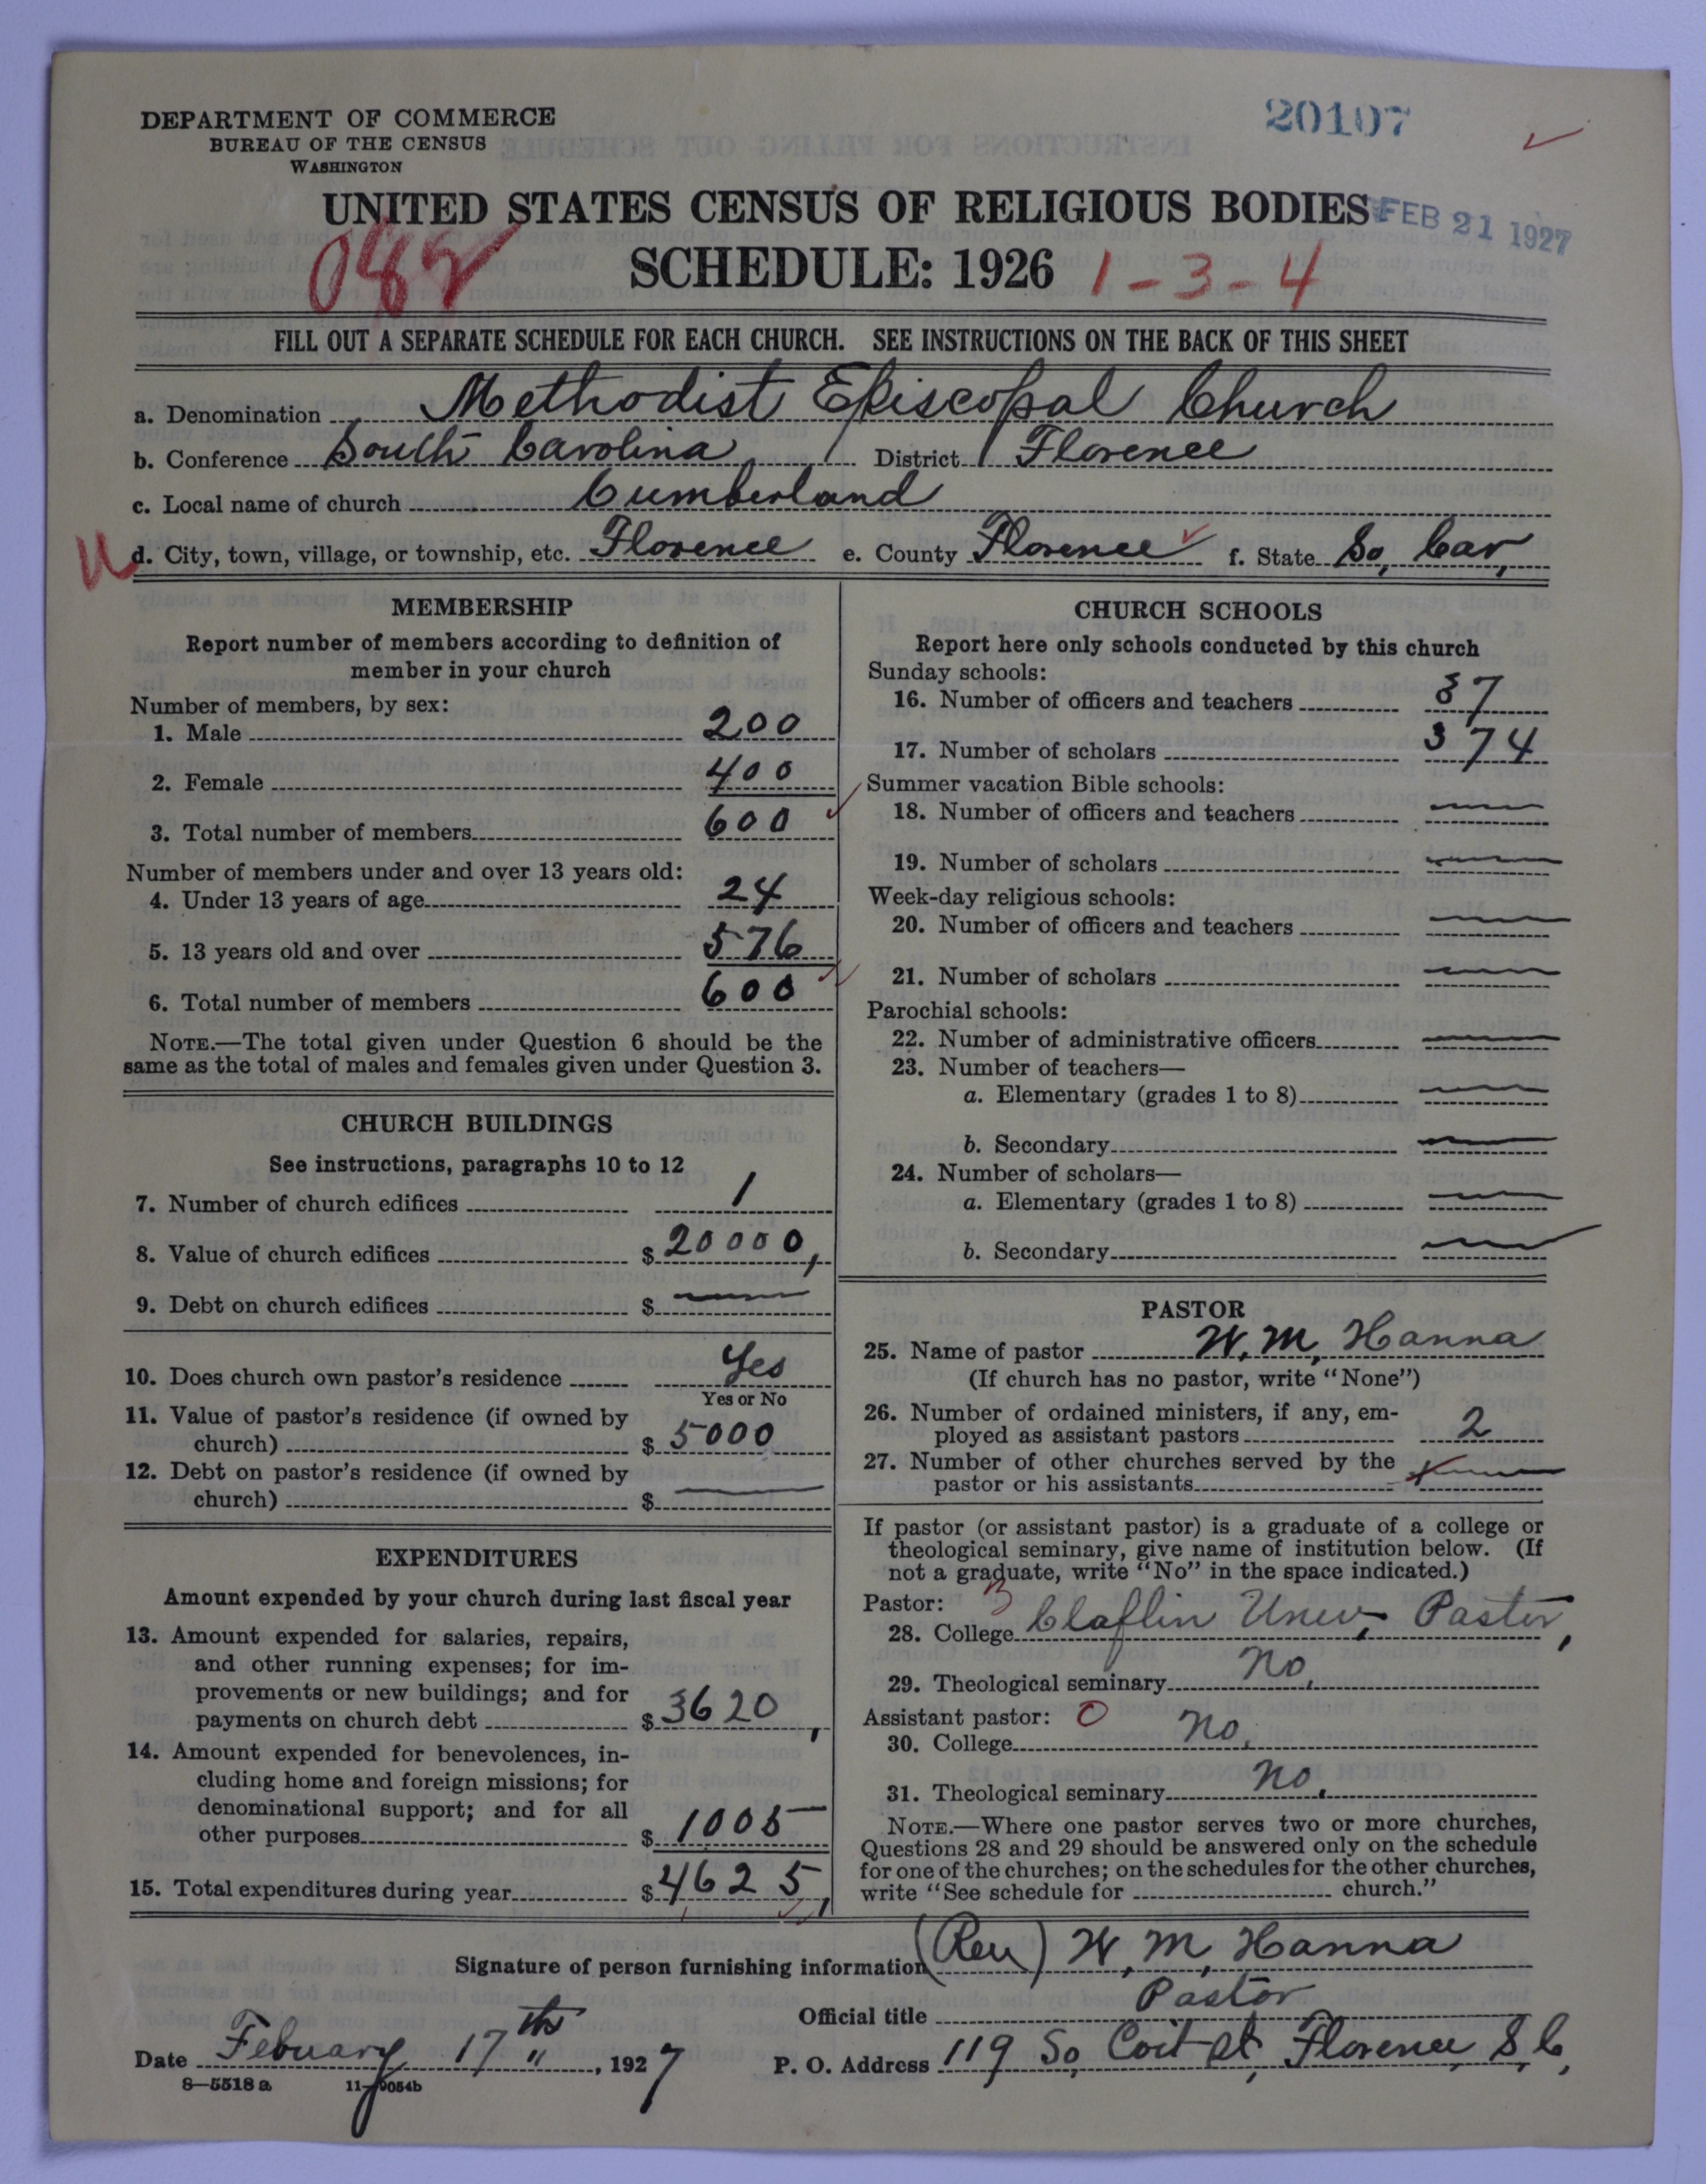 DEPARTMENT OF COMMERCE
BUREAU OF THE CENSUS
WASHINGTON
20107
UNITED STATES CENSUS OF RELIGIOUS BODIES
FEB 21 1927
SCHEDULE: 1926
1-3-4
FILL OUT A SEPARATE SCHEDULE FOR EACH CHURCH. SEE INSTRUCTIONS ON THE BACK OF THIS SHEET
a. Denomination Methodist Episcopal Church
b. Conference South Carolina District Florence
c. Local name of church Cumberland
d. City, town, village, or township, etc. Florence e. County Florence f. State So, Car,
MEMBERSHIP
Report number of members according to definition of
member in your church
Number of members, by sex:
1. Male 200
2. Female 400
3. Total number of members 600
Number of members under and over 13 years old:
4. Under 13 years of age 24
5. 13 years old and over 576
6. Total number of members 600
NOTE.—The total given under Question 6 should be the
same as the total of males and females given under Question 3.
CHURCH BUILDINGS
See instructions, paragraphs 10 to 12
7. Number of church edifices 1
8. Value of church edifices $ 20000,
9. Debt on church edifices $ —
10. Does church own pastor's residence Yes
Yes or No
11. Value of pastor's residence (if owned by
church) $ 5000
12. Debt on pastor's residence (if owned by
church) $ —
EXPENDITURES
Amount expended by your church during last fiscal year
13. Amount expended for salaries, repairs,
and other running expenses; for im-
provements or new buildings; and for
payments on church debt $ 3620,
14. Amount expended for benevolences, in-
cluding home and foreign missions; for
denominational support; and for all
other purposes $ 1005
15. Total expenditures during year $ 4625,
CHURCH SCHOOLS
Report here only schools conducted by this church
Sunday schools:
16. Number of officers and teachers 37
17. Number of scholars 374
Summer vacation Bible schools:
18. Number of officers and teachers —
19. Number of scholars —
Week-day religious schools:
20. Number of officers and teachers —
21. Number of scholars —
Parochial schools:
22. Number of administrative officers —
23. Number of teachers—
a. Elementary (grades 1 to 8) —
b. Secondary —
24. Number of scholars—
a. Elementary (grades 1 to 8) —
b. Secondary —
PASTOR
25. Name of pastor W. M, Hanna
(If church has no pastor, write "None")
26. Number of ordained ministers, if any, em-
ployed as assistant pastors 2
27. Number of other churches served by the
pastor or his assistants —
If pastor (or assistant pastor) is a graduate of a college or
theological seminary, give name of institution below. (If
not a graduate, write "No" in the space indicated.)
Pastor: 3
28. College Claflin Univ, Pastor,
29. Theological seminary No,
Assistant pastor: 0
30. College No,
31. Theological seminary No.
NOTE.—Where one pastor serves two or more churches,
Questions 28 and 29 should be answered only on the schedule
for one of the churches; on the schedules for the other churches,
write "See schedule for church."
Signature of person furnishing information (Rev) W, M, Hanna
Official title Pastor
Date Febuary 17th, 1927 P. O. Address 119 So, Coit St, Florence, S, C,
8—5518 a 11—9054b